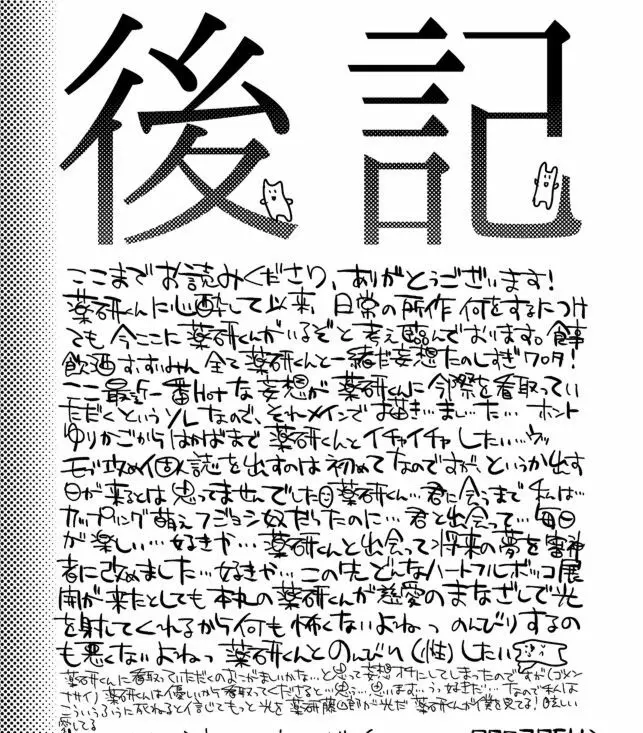 後記
ここまでお読みくださり、ありがとうございます!
薬研くんに心酔して以来、日常の所作 何をするにつけ
ても 今ここに薬研くんがいるぞと考え臨んでおります。食事
飲酒 すいみん 全て薬研くんと一緒だ妄想たのしすぎワロタ!
ここ最近一番Hotな妄想が 薬研くんに今際を看取ってい
ただくというソレなので、それメインでお描き…ました… ホント
ゆりかごからはかばまで 薬研くんとイチャイチャ したい…ウッ
モブ攻め個人誌を出すのは初めてなのですが、というか出す
日が来るとは思ってませんでした 薬研くん…君に会うまで私は…
カップリング萌えフジョシ奴だったのに… 君と出会って…毎日
が楽しい…好きや… 薬研くんと出会って将来の夢を審神
者に改めました…好きや…この先どんなハートフルボッコ展
開が来たとしても本丸の薬研くんが慈愛のまなざしで光
を射してくれるから何も怖くないよねっ のんびりするの
も悪くないよねっ 薬研くんとのんびり(性)したい
薬研くんに看取っていただくのおこがましいかな…と思って妄想オチにしてしまったのですが(ゴメン
ナサイ) 薬研くんは優しいから看取ってくださると…思っ…思います…うっ好きだ… なので私は
こういうふうに死ねると信じてもっと光を 薬研藤四郎が光だ 薬研くんが僕を見てる! 眩しい
愛してる